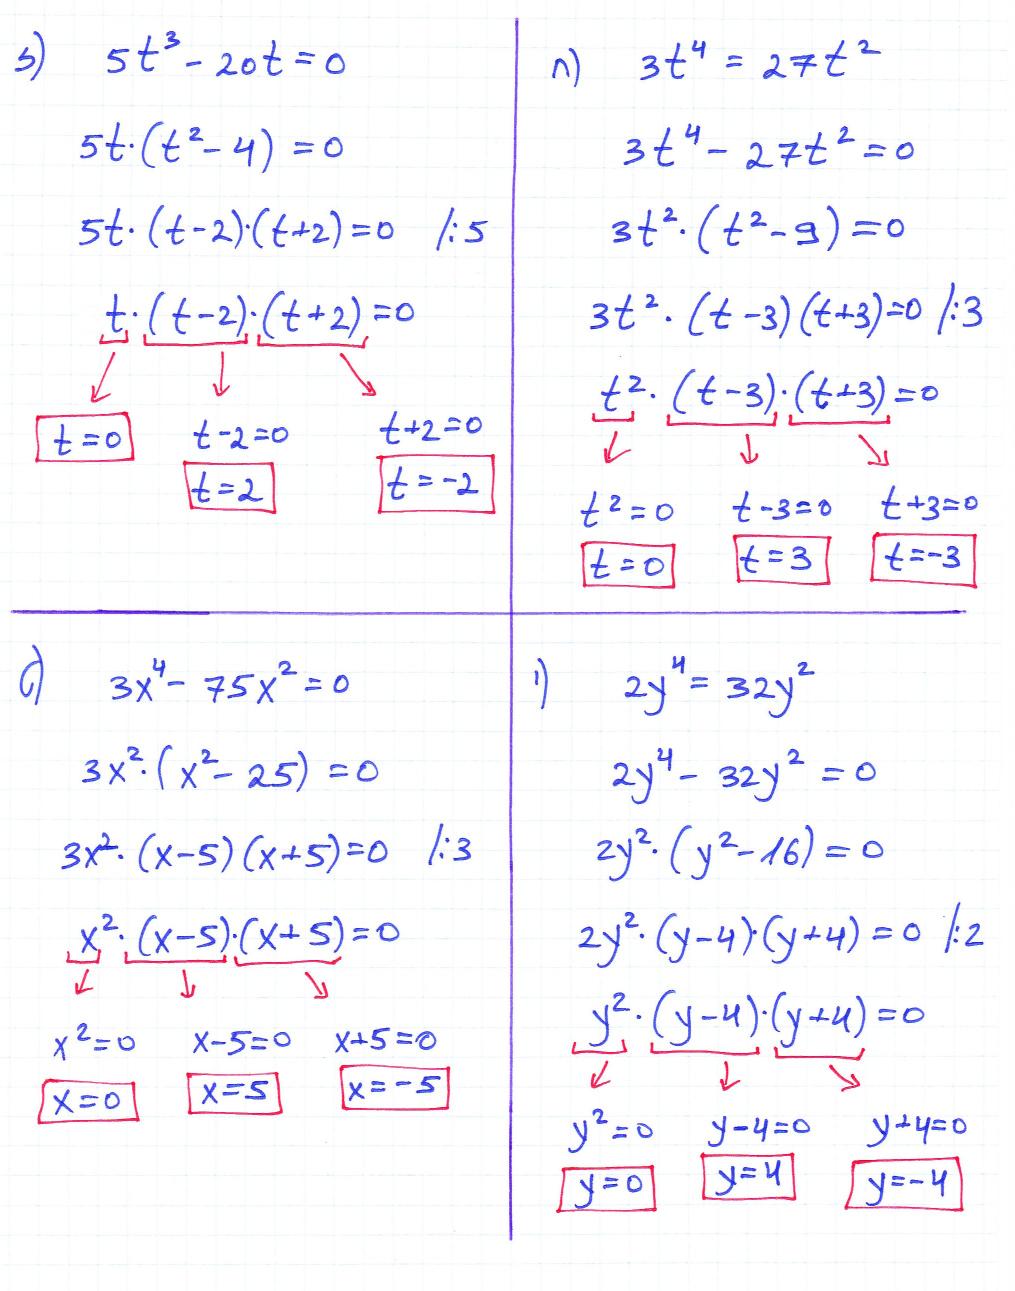 s) 5t³ - 20t = 0
5t·(t² - 4) = 0
5t·(t-2)·(t+2) = 0 /:5
t·(t-2)·(t+2) = 0
t=0 t-2=0 t+2=0
t=2 t=-2
n) 3t⁴ = 27t²
3t⁴ - 27t² = 0
3t²·(t² - 9) = 0
3t²·(t-3)(t+3)=0 /:3
t²·(t-3)·(t+3)=0
t²=0 t-3=0 t+3=0
t=0 t=3 t=-3
3x⁴ - 75x² = 0
3x²·(x² - 25) = 0
3x²·(x-5)(x+5)=0 /:3
x²·(x-5)·(x+5)=0
x²=0 x-5=0 x+5=0
x=0 x=5 x=-5
1) 2y⁴ = 32y²
2y⁴ - 32y² = 0
2y²·(y² - 16) = 0
2y²·(y-4)·(y+4) = 0 /:2
y²·(y-4)·(y+4)=0
y²=0 y-4=0 y+4=0
y=0 y=4 y=-4